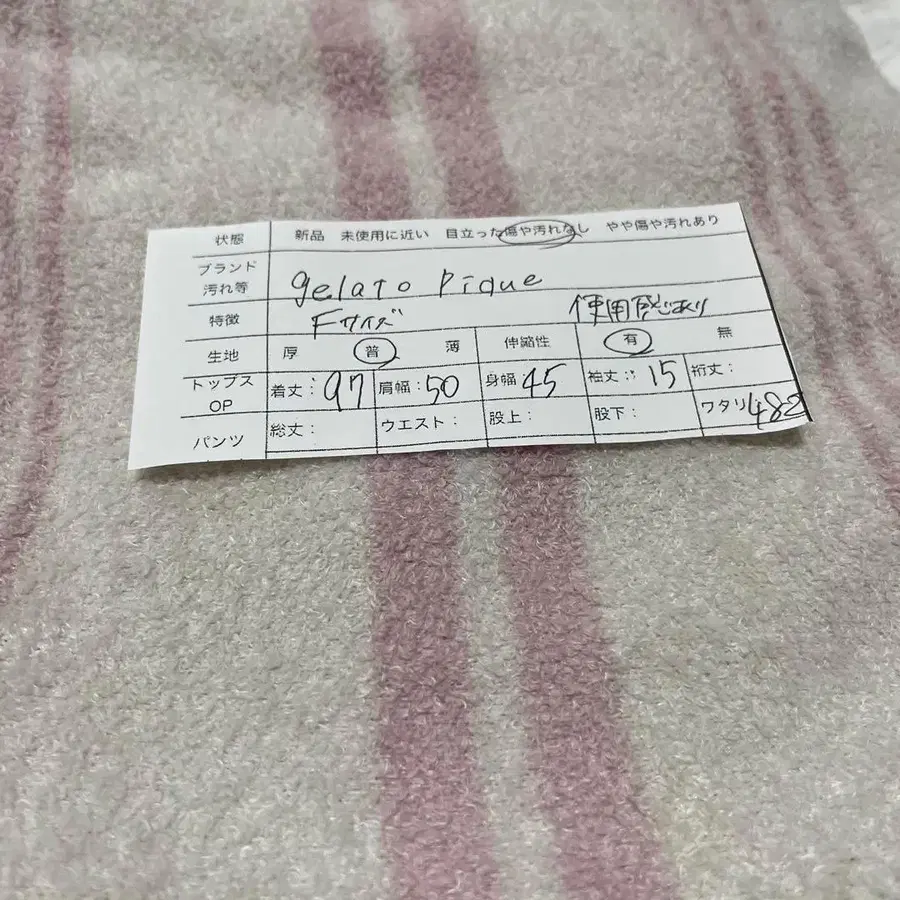 状態 新品 未使用に近い 目立った傷や汚れなし やや傷や汚れあり
ブランド
汚れ等 gelato pique
特徴 Fサイズ 使用感じあり
生地 厚 普 薄 伸縮性 有 無
トップス
OP 着丈：97 肩幅：50 身幅：45 袖丈：15 裄丈：
パンツ 総丈： ウエスト： 股上： 股下： ワタリ 482